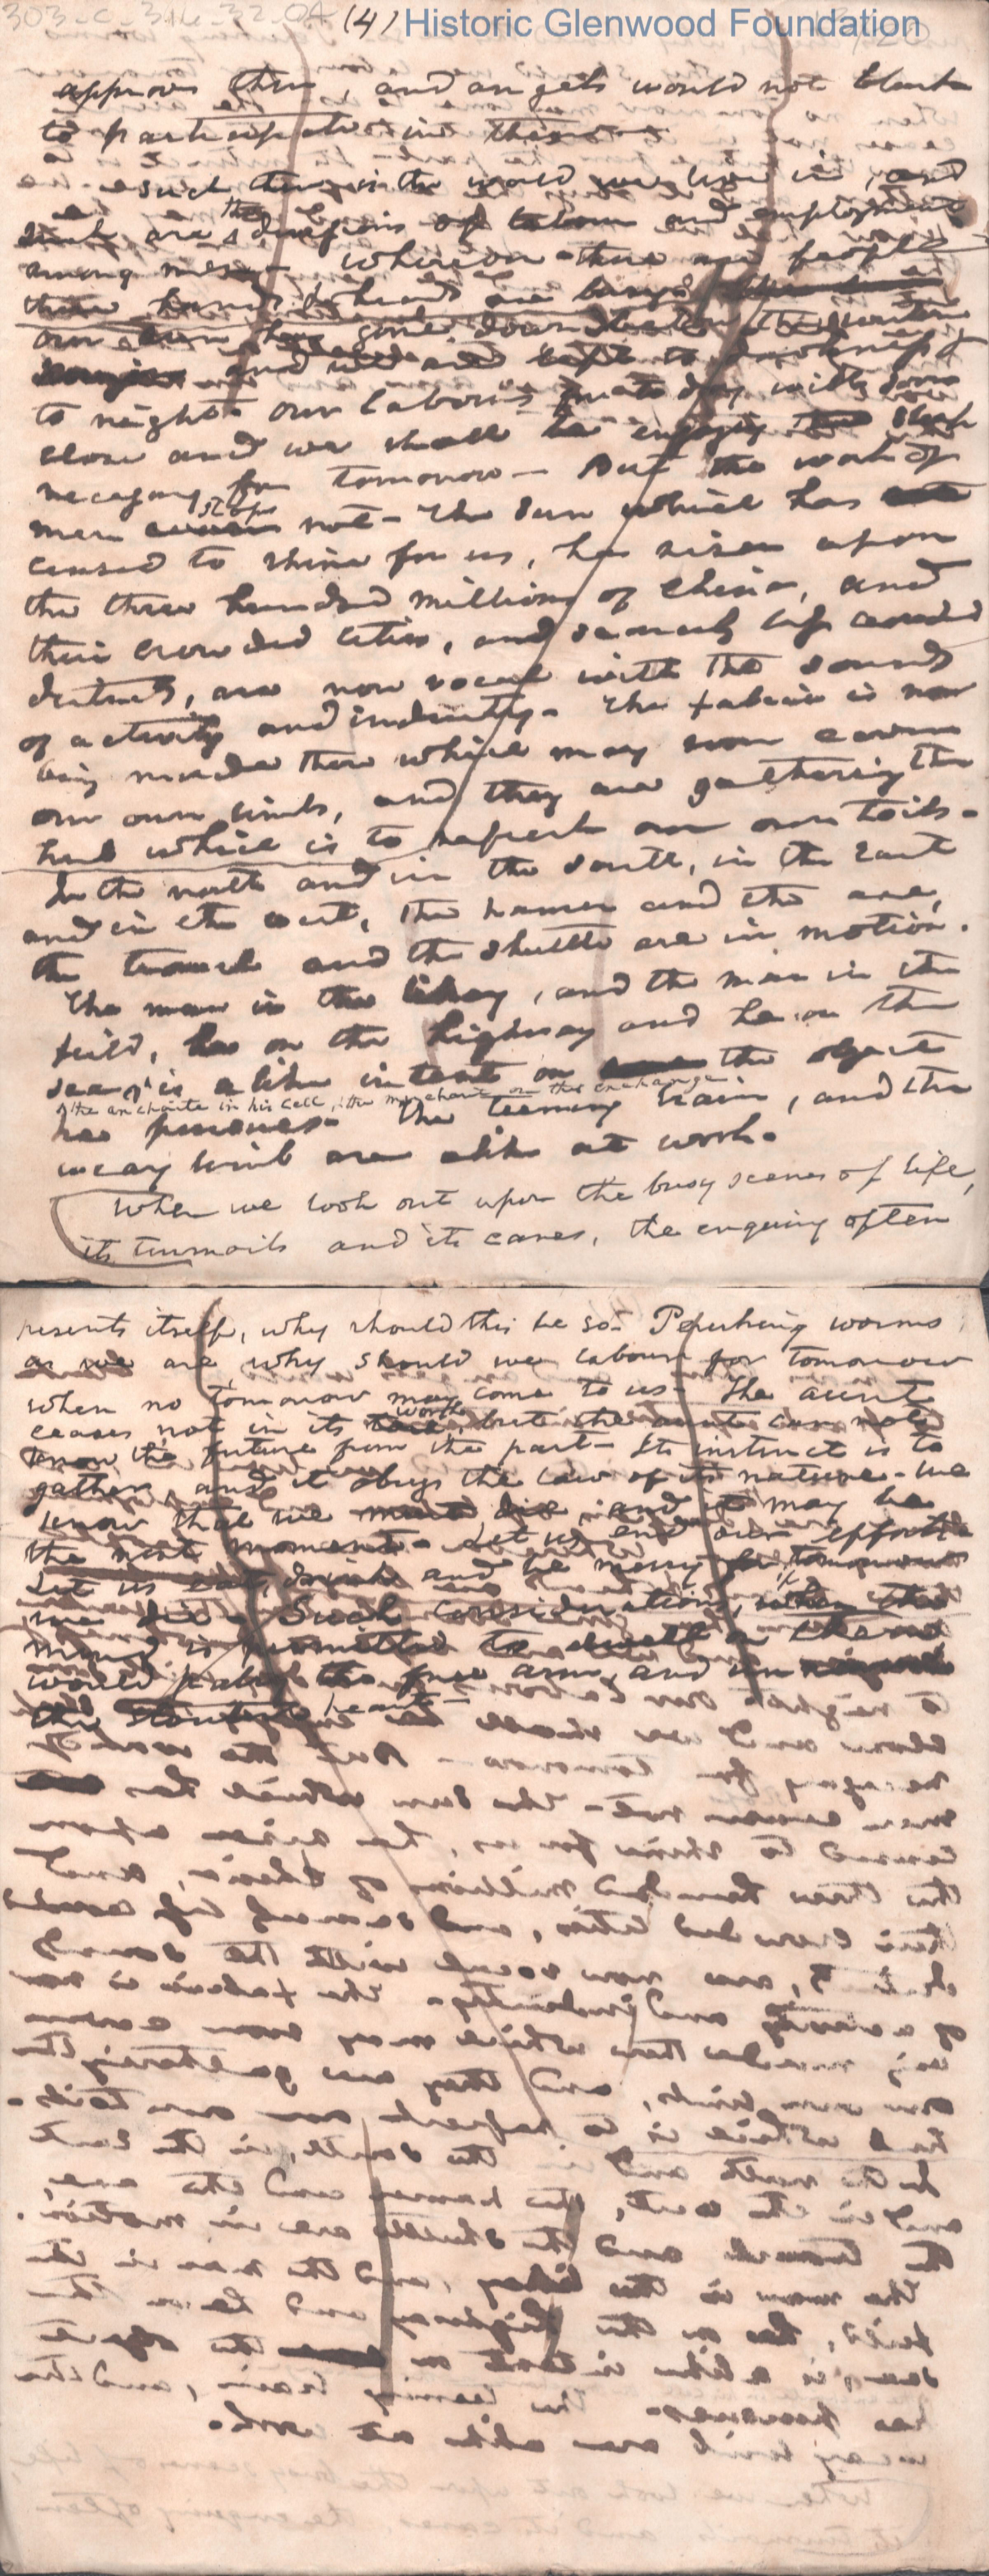 303-C-314-32-04 (4) Historic Glenwood Foundation
approves them, and angels would not blush
to participate in them
such then is the world we live in, and
such are the divisions of labour and employment
among men - wherever there are people
their hands & heads are busy
our sun has gone down
and we are left to darkness &
to night. our labours for to day will soon
close and we shall be enjoying the sleep
necessary for tomorrow - But the work of
men stops not - The sun which has
ceased to shine for us, has risen upon
the three hundred millions of China, and
their crowded cities, and scarcely less crowded
districts, are now vocal with the sounds
of activity and industry - The fabric is now
being made there which may soon cover
our own limbs, and they are gathering the
herb which is to refresh our own toils -
In the north and in the south, in the east
and in the west, the hamer and the axe,
the trowel and the shuttle are in motion.
The man in the library, and the man in the
feild, he on the highway and he on the
sea, is alike intent on the object
the anchorite in his cell, the merchant on the exchange
he pursues - The teeming brain, and the
weary limb are alike at work.
When we look out upon the busy scenes of life,
its turmoils and its cares, the enquiry often
presents itself, why should this be so - Perishing worms
as we are, why should we labour for tomorrow
when no tomorrow may come to us - The aunt
ceases not in its work, but the aunt can not
know the future from the past - Its instinct is to
gather, and it obeys the law of its nature - we
know that we must die, and it may be
the next moment - Let us end our efforts
Let us eat, drink and be merry for tomorrow
we die - Such considerations, if the
mind is permitted to dwell on them
would palsy the free arm, and un
the stoutest heart -